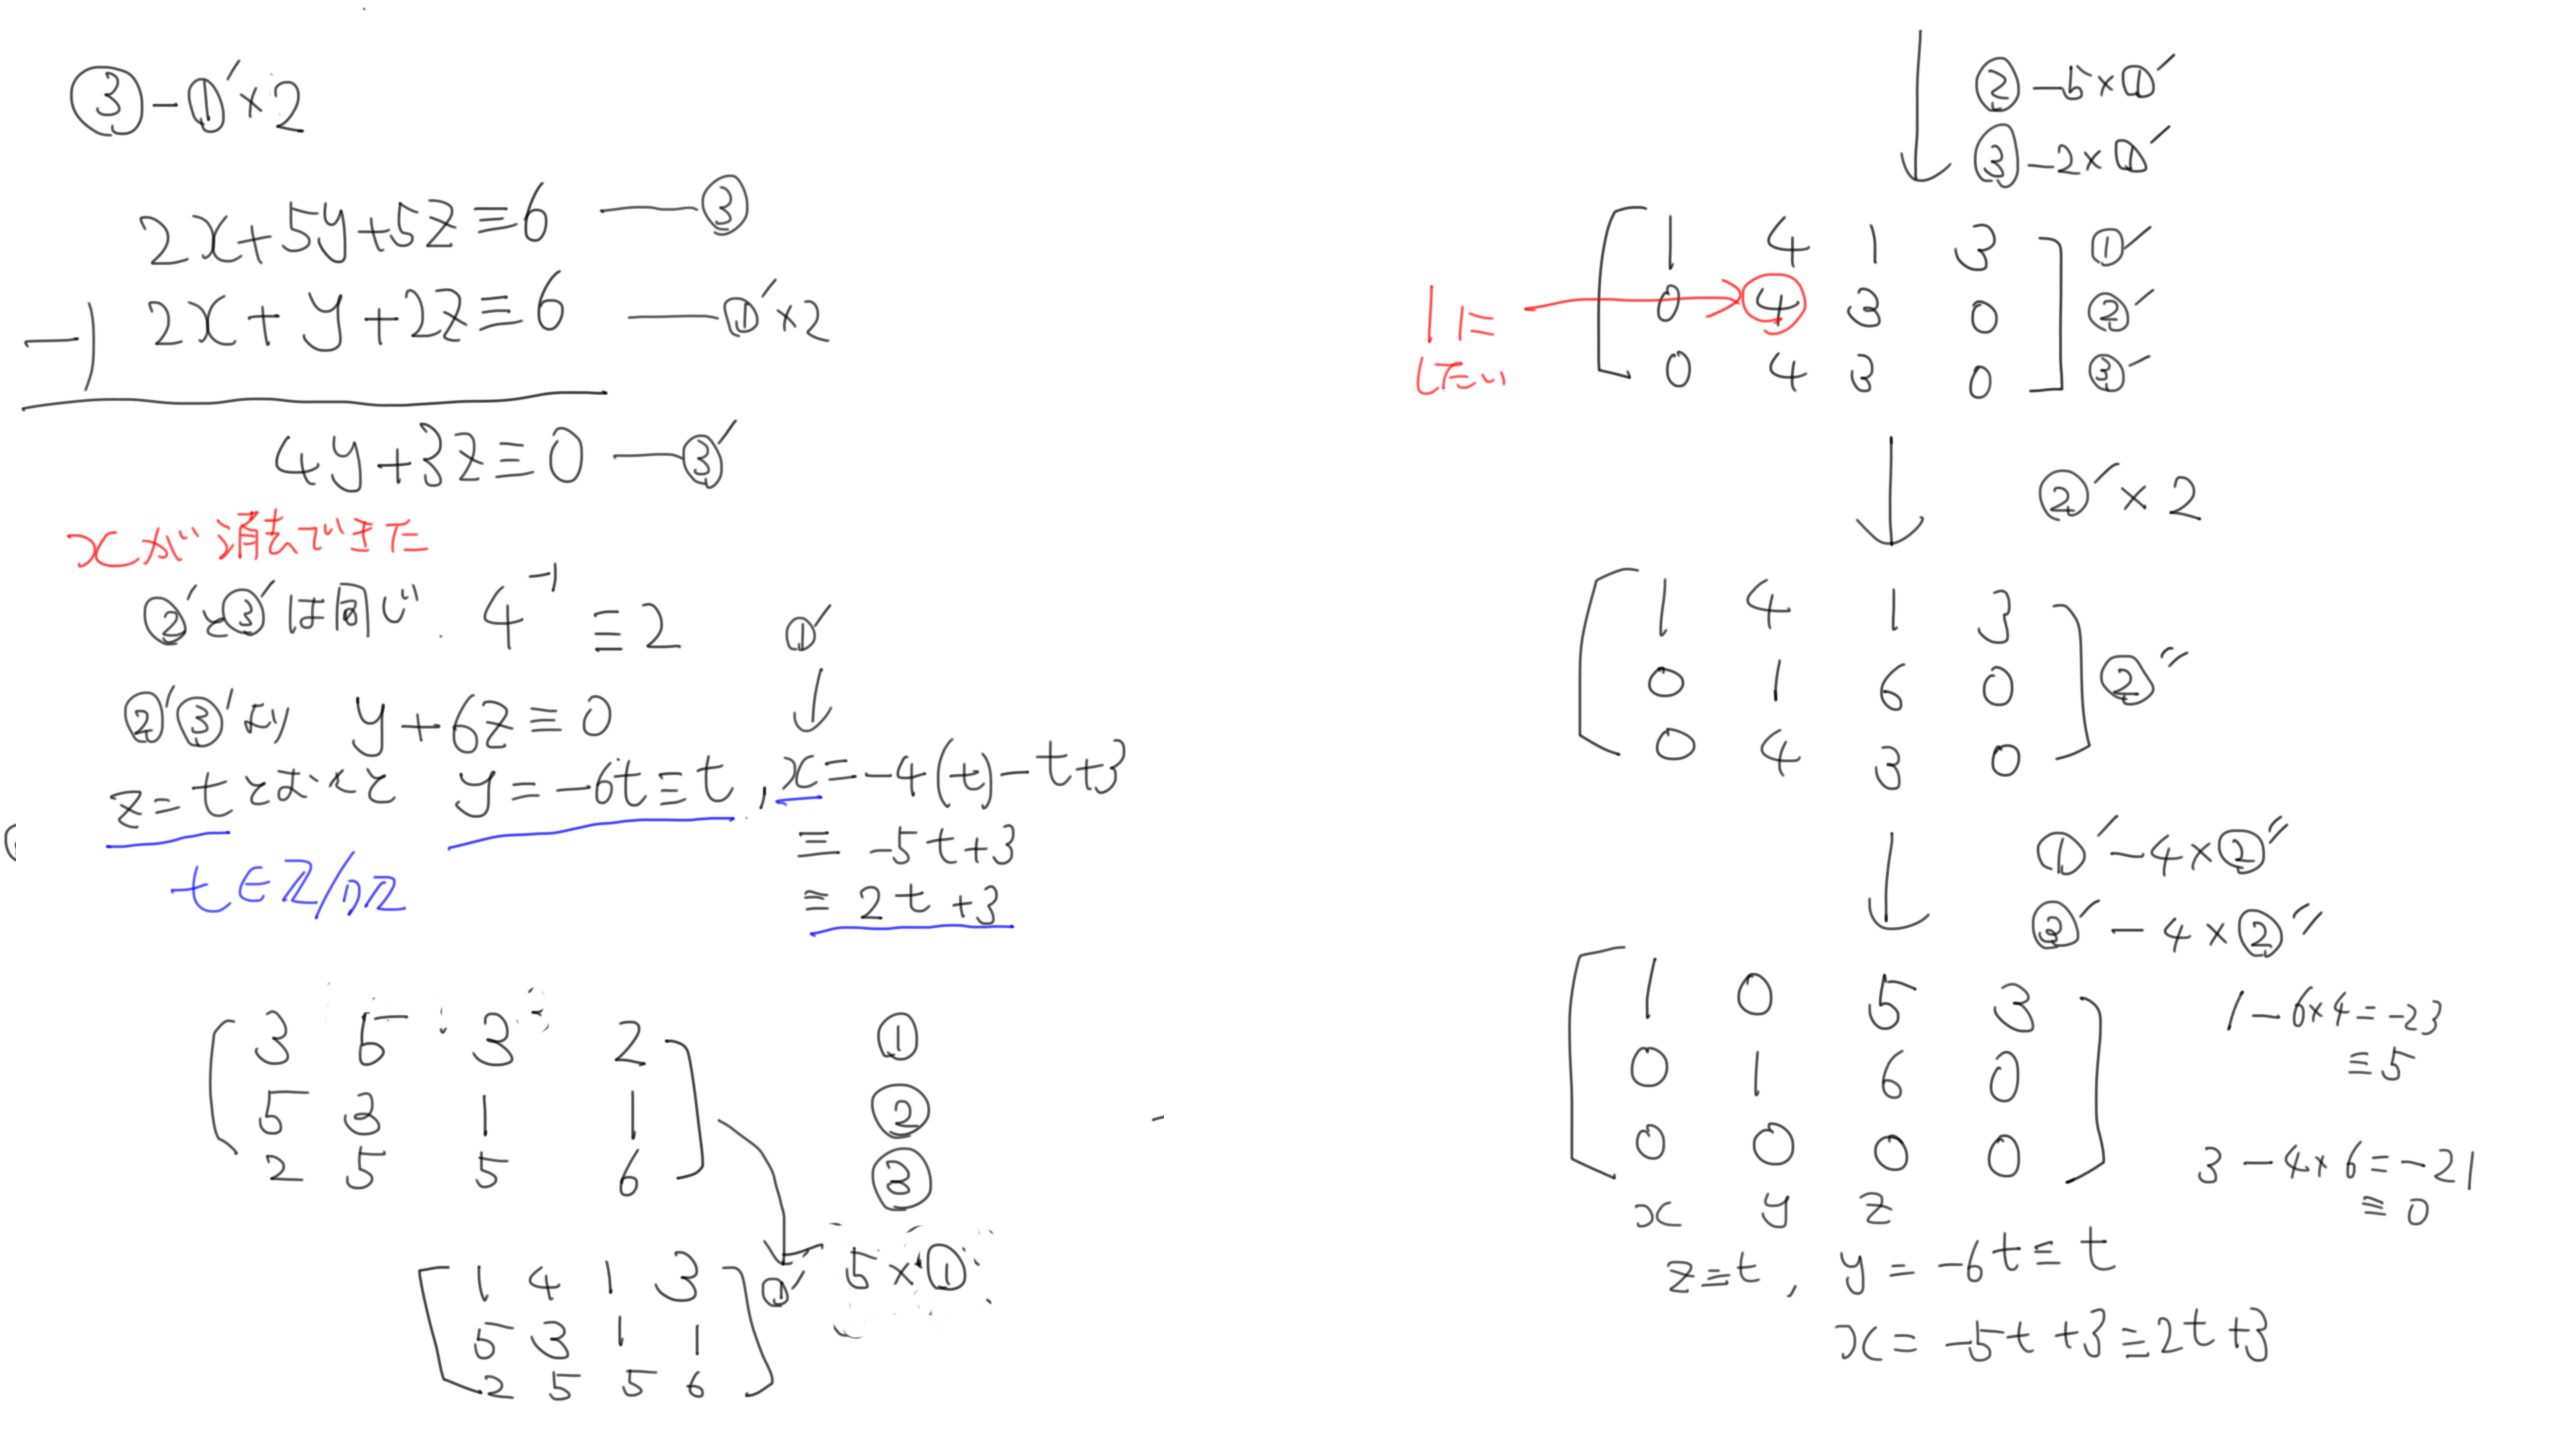 ③-①'×2
2x+5y+5z≡6 —③
-) 2x+y+2z≡6 —①'×2
4y+3z≡0 —③'
xが消去できた
②'と③'は同じ. 4⁻¹≡2
②'③'より y+6z≡0
①'
↓
z=tとおくと y=-6t≡t, x=-4(t)-t+3
≡-5t+3
≡2t+3
t∈ℤ/nℤ
3 5 3 2 ①
5 3 1 1 ②
2 5 5 6 ③
5×①
1 4 1 3 ①'
5 3 1 1
2 5 5 6
↓ ②-5×①'
③-2×①'
1 4 1 3 ①'
0 4 3 0 ②'
0 4 3 0 ③'
1に→
したい
↓ ②'×2
1 4 1 3
0 1 6 0 ②''
0 4 3 0
↓ ①'-4×②''
③'-4×②''
1 0 5 3
0 1 6 0
0 0 0 0
x y z
1-6×4=-23
≡5
3-4×6=-21
≡0
z≡t, y=-6t≡t
x=-5t+3≡2t+3